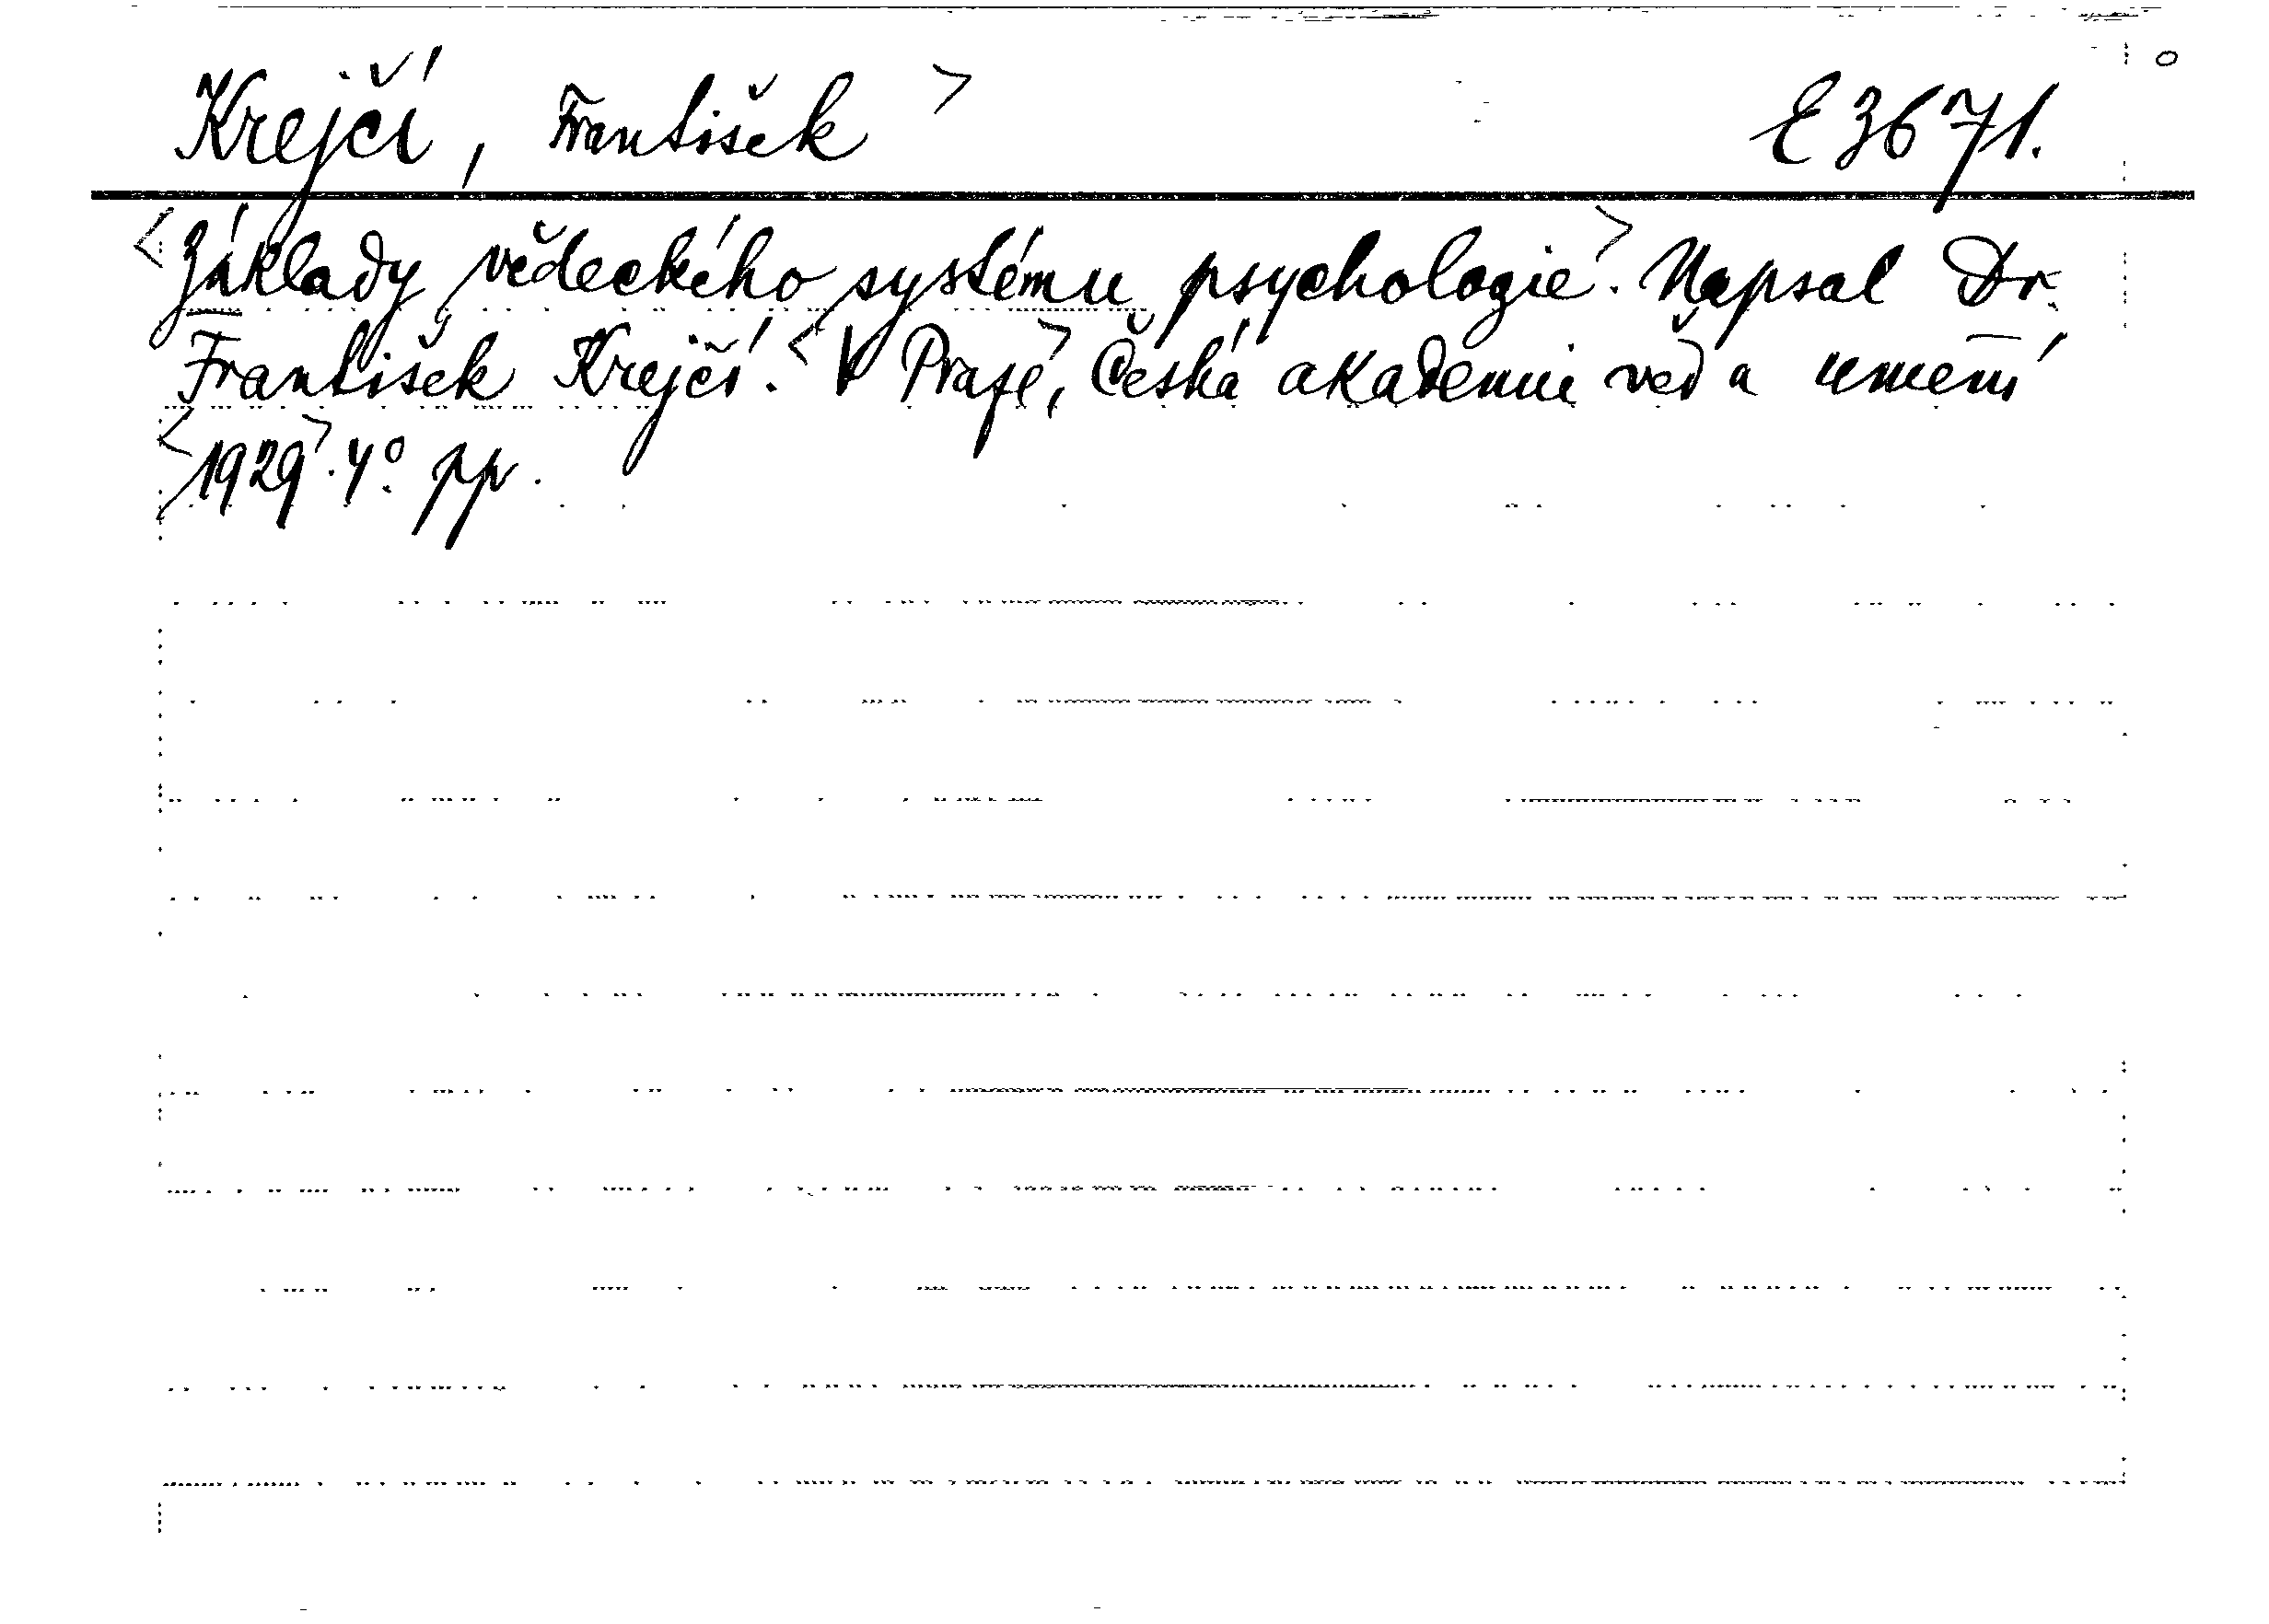 Krejčí, František> E 3671.
<Základy vědeckého systému psychologie>. Napsal Dr.
František Krejčí. <V Praze>, Česká akademie věd a umění
<1929>. 4° pp.